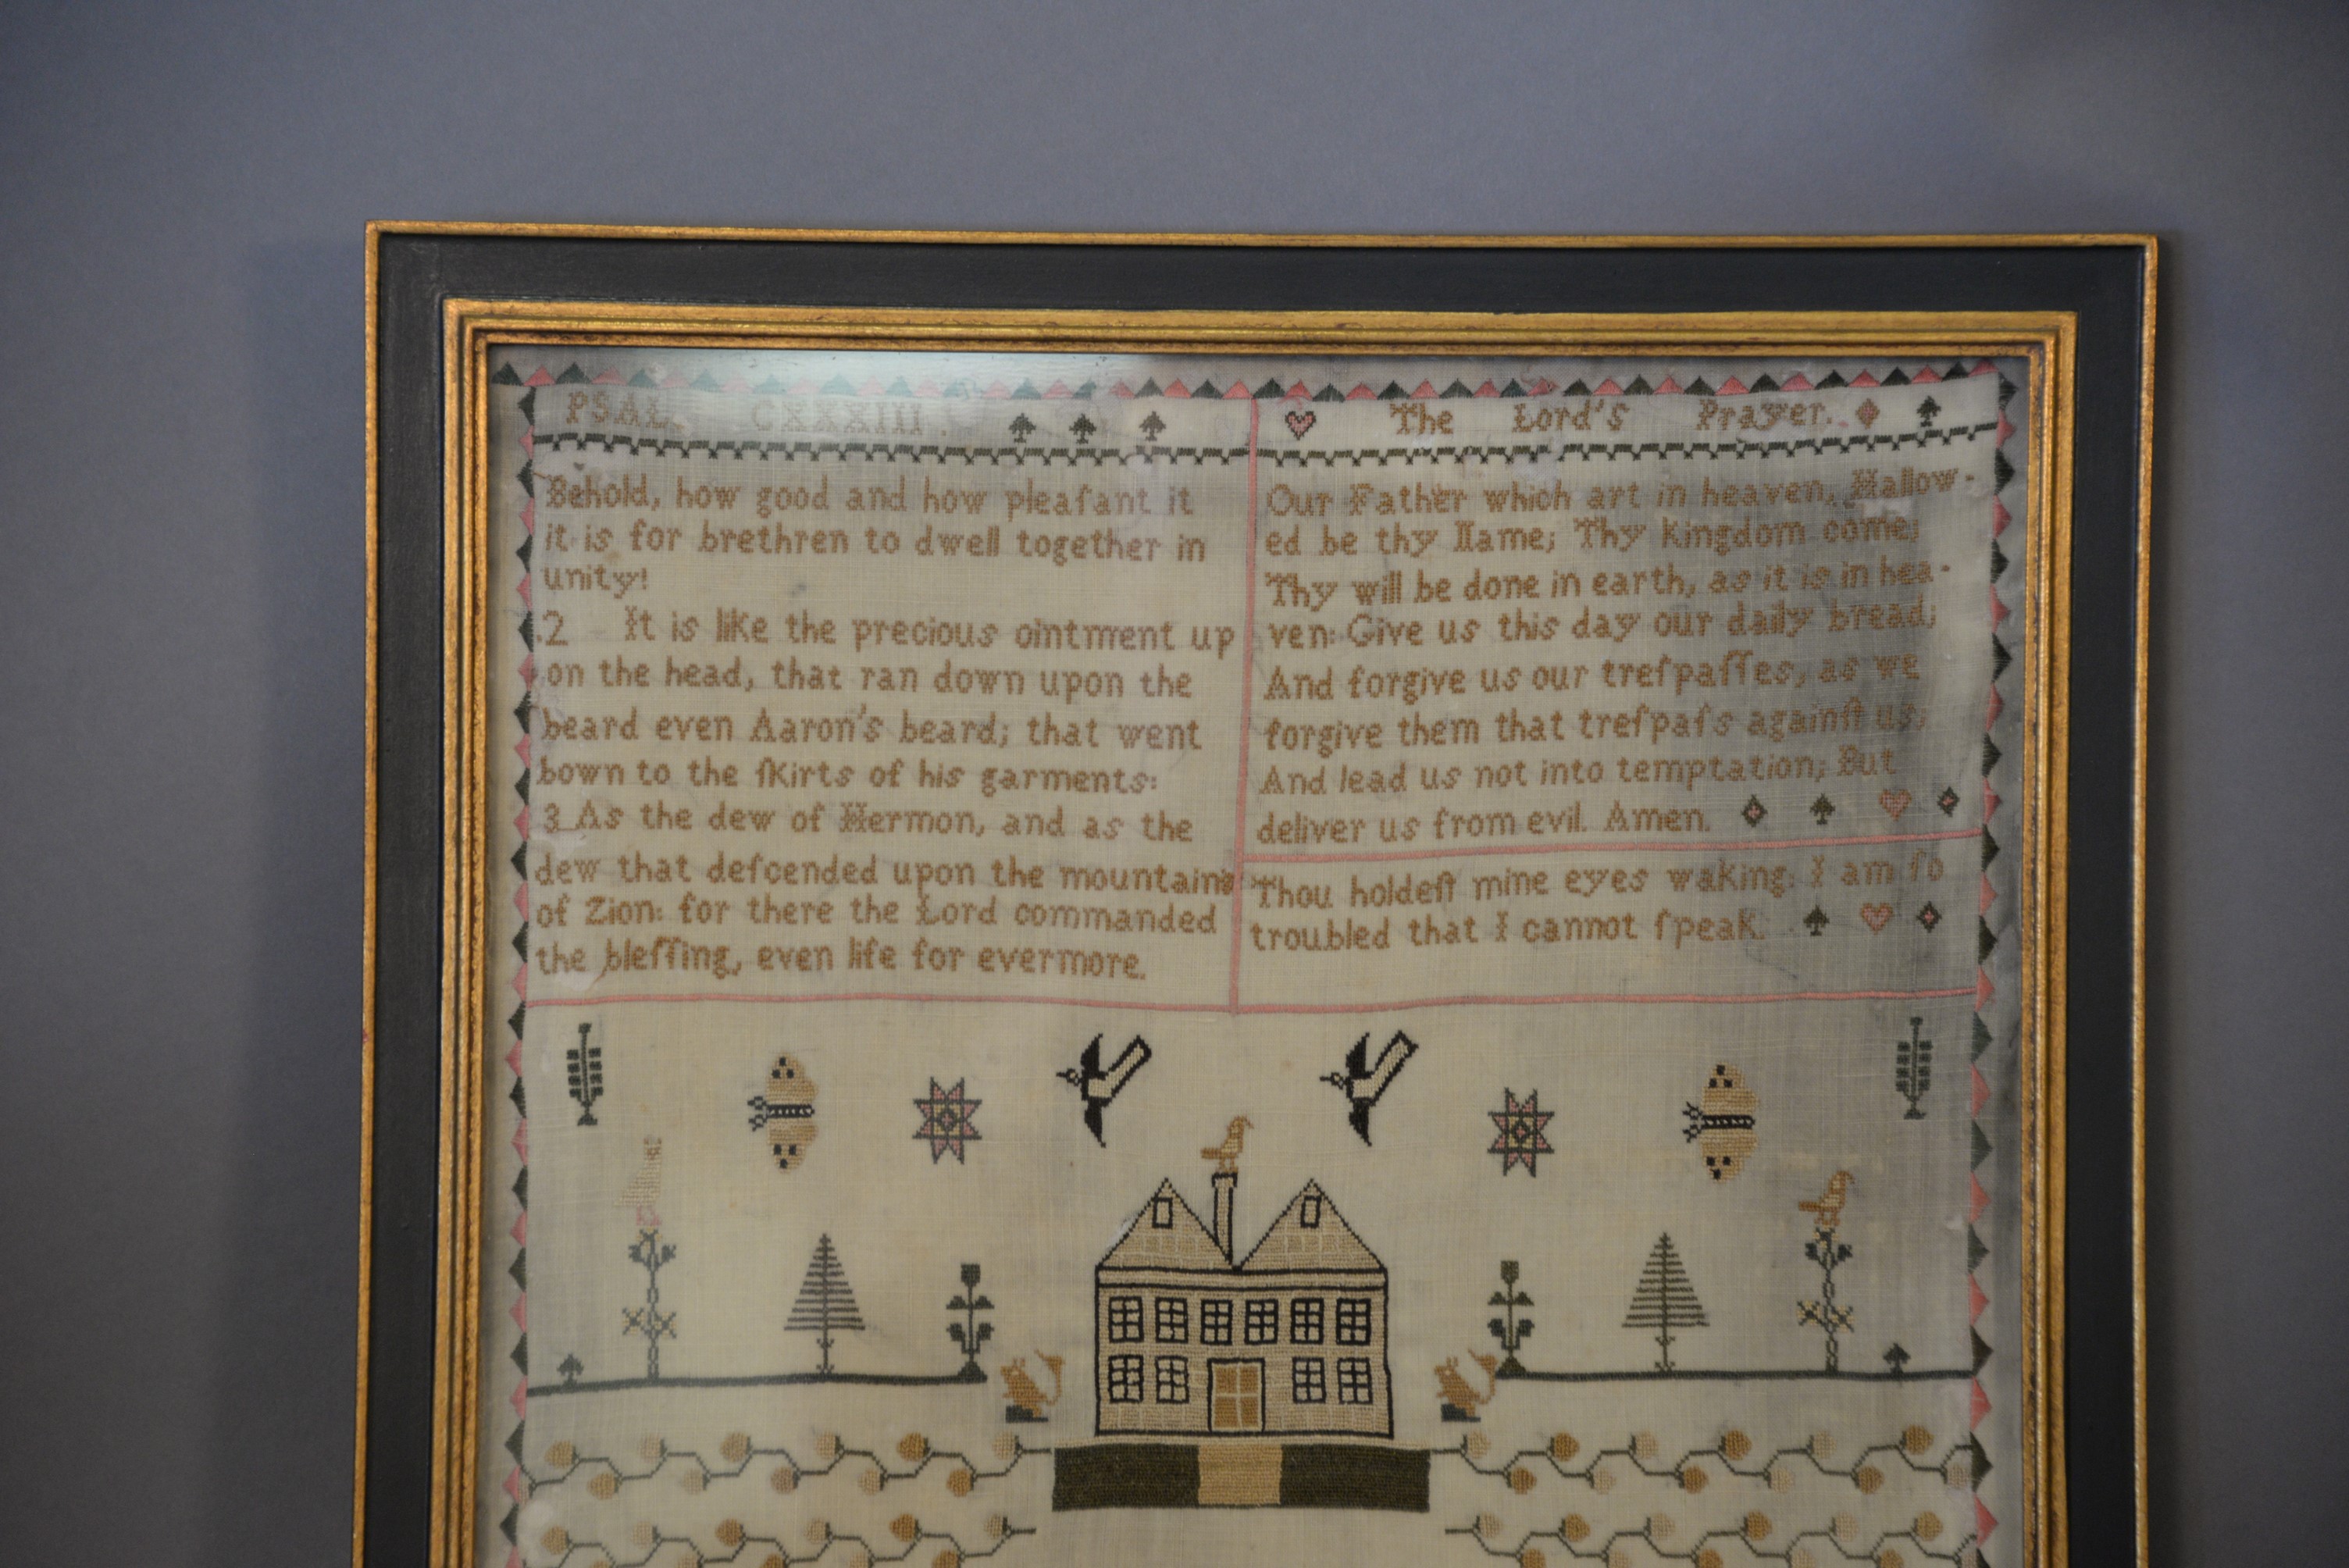 PSAL. CXXXIII.
Behold, how good and how pleaſant it
it is for brethren to dwell together in
unity!
.2 It is like the precious ointment up
on the head, that ran down upon the
beard even Aaron's beard; that went
bown to the ſkirts of his garments:
3 As the dew of Hermon, and as the
dew that deſcended upon the mountains
of Zion: for there the Lord commanded
the bleſſing, even life for evermore.
The Lord's Prayer.
Our Father which art in heaven, Hallow-
ed be thy Name; Thy Kingdom come;
Thy will be done in earth, as it is in hea-
ven: Give us this day our daily bread;
And forgive us our treſpaſſes, as we
forgive them that treſpaſs againſt us;
And lead us not into temptation; But
deliver us from evil. Amen.
Thou holdeſt mine eyes waking: I am ſo
troubled that I cannot ſpeak.